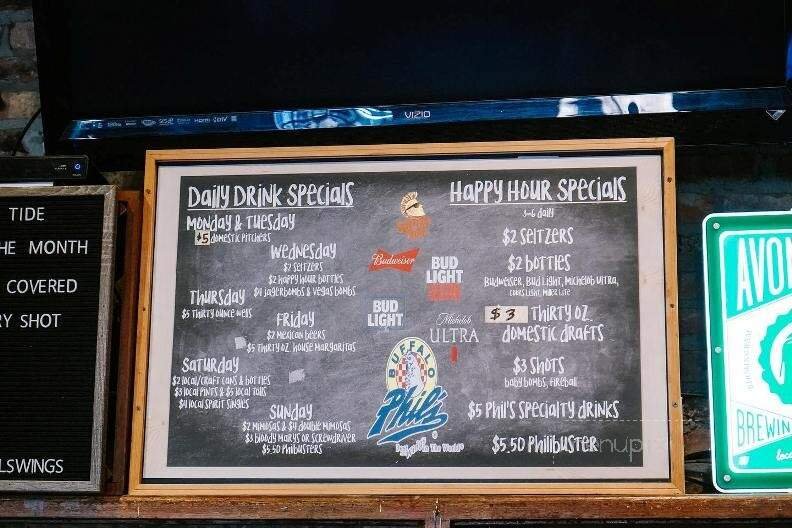 VIZIO
HDMI
TIDE
HE MONTH
COVERED
RY SHOT
LSWINGS
DAILY DRINK SPECIALS
MONDAY & TUESDAY
$5 DOMESTIC PITCHERS
WEDNESDAY
$2 SELTZERS
$2 HAPPY HOUR BOTTLES
$4 JAGERBOMBS & VEGAS BOMBS
THURSDAY
$5 THIRTY OUNCE WELLS
FRIDAY
$2 MEXICAN BEERS
$5 THIRTY OZ. HOUSE MARGARITAS
SATURDAY
$2 LOCAL/CRAFT CANS & BOTTLES
$3 LOCAL PINTS & $5 LOCAL TALLS
$4 LOCAL SPIRIT SINGLES
SUNDAY
$2 MIMOSAS & $4 DOUBLE MIMOSAS
$3 BLOODY MARYS OR SCREWDRIVER
$5.50 PHILIBUSTERS
Budweiser
BUD
LIGHT
BUD
LIGHT
Michelob
ULTRA
BUFFALO
Phil's
In The World
HAPPY HOUR SPECIALS
3-6 DAILY
$2 SELTZERS
$2 BOTTLES
BUDWEISER, BUD LIGHT, MICHELOB ULTRA,
COORS LIGHT, MILLER LITE
$3 THIRTY OZ.
DOMESTIC DRAFTS
$3 SHOTS
BABY BOMBS, FIREBALL
$5 PHIL'S SPECIALTY DRINKS
$5.50 PHILIBUSTER
AVON
BREWIN
loca